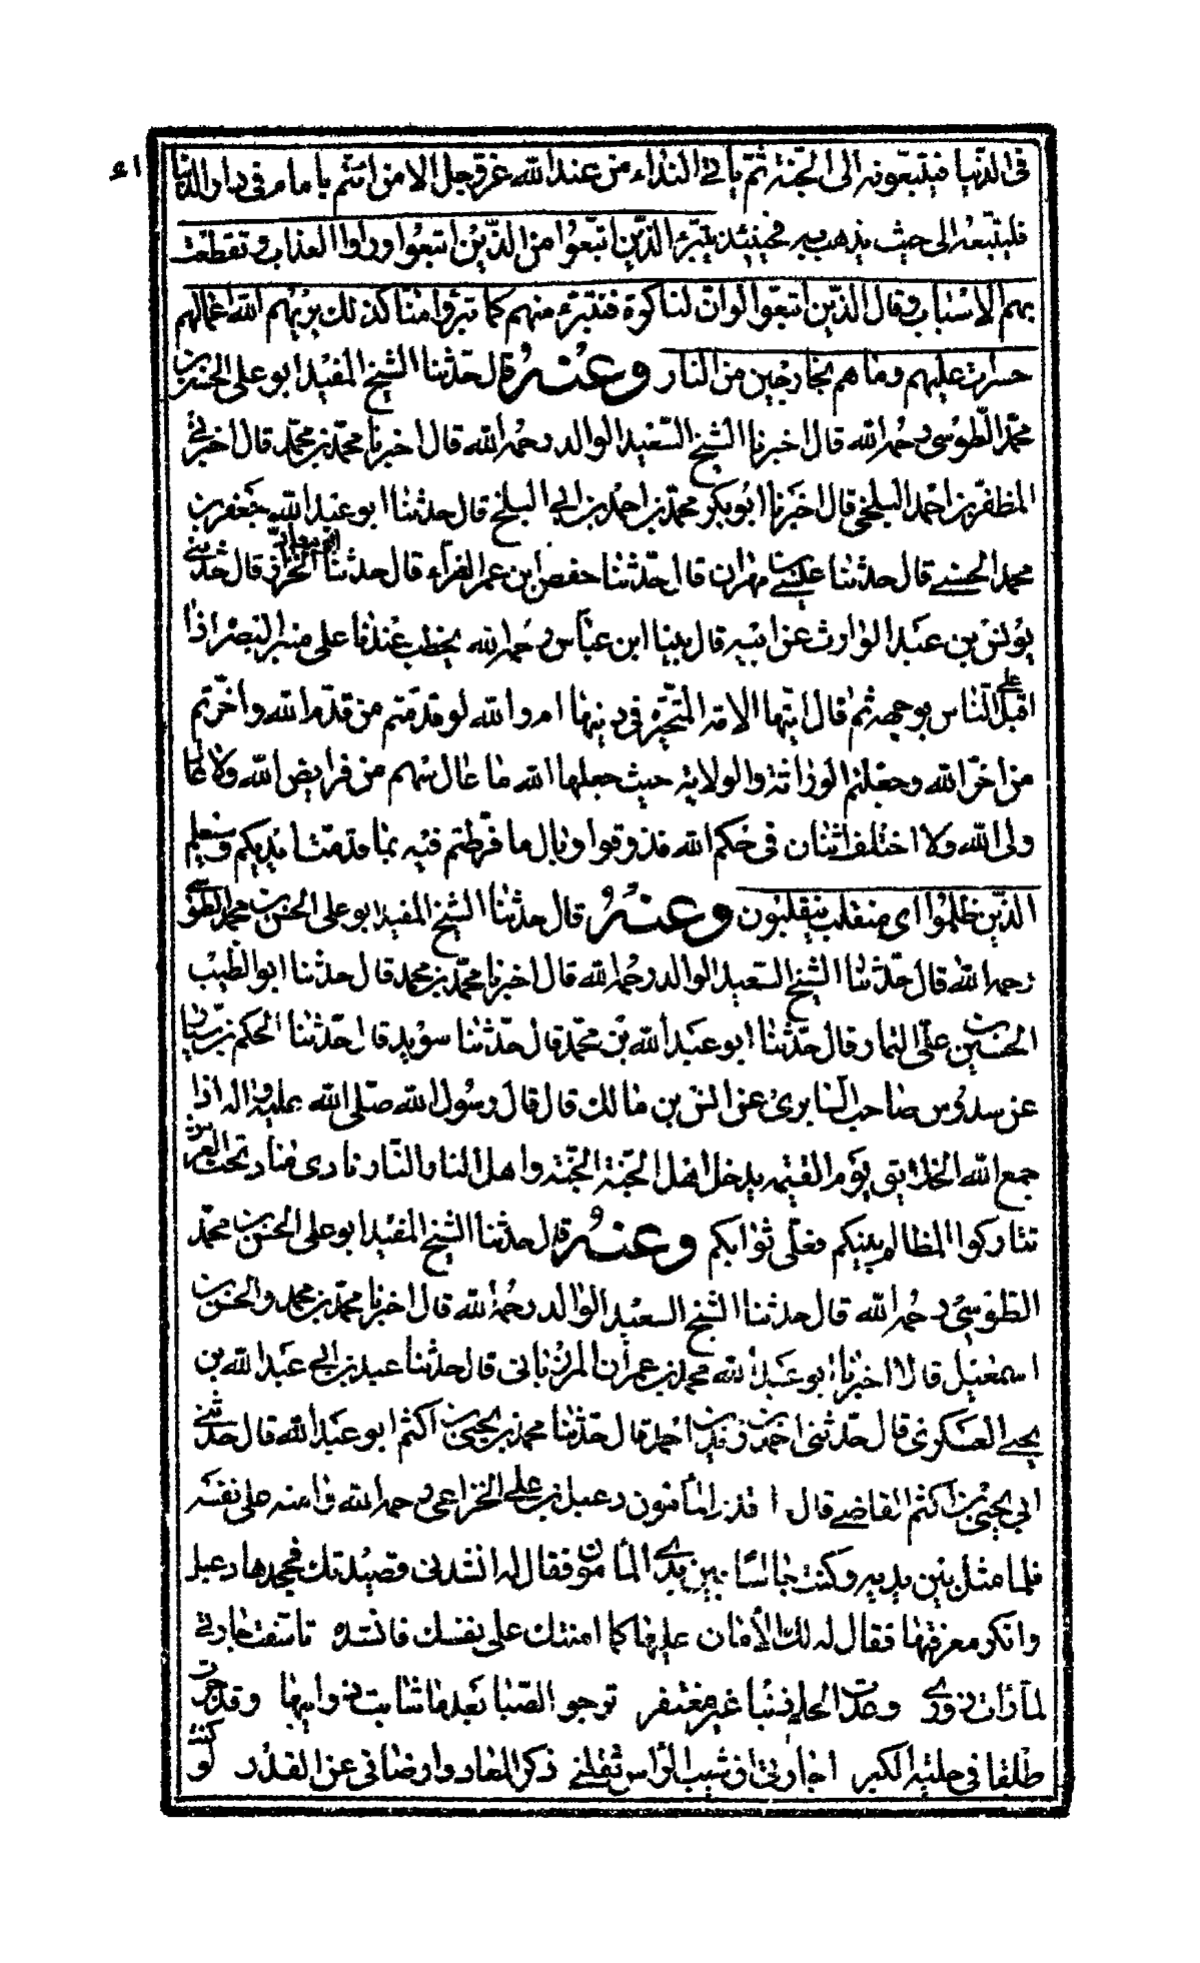 في الدنيا فيتبعونه الى الجنة ثم ياتي النداء من عند الله عز وجل الا من ائتم بامام في دار الدنيا
فليتبعه الى حيث يذهب به فحينئذ يتبرء الذين اتبعوا من الذين اتبعوا وراوا العذاب وتقطعت
بهم الاسباب وقال الذين اتبعوا لو ان لنا كرة فنتبرء منهم كما تبرؤا منا كذلك يريهم الله اعمالهم
حسرات عليهم وما هم بخارجين من النار وعنه قال حدثنا الشيخ المفيد ابو علي الحسن بن
محمد الطوسي رحمه الله قال اخبرنا الشيخ السعيد الوالد رحمه الله قال اخبرنا محمد بن محمد قال اخبرني
المظفر بن احمد البلخي قال اخبرنا ابو بكر محمد بن احمد بن ابي البلخ قال حدثنا ابو عبد الله جعفر بن
محمد الحسني قال حدثنا عيسى بن مهران قال حدثنا حفص بن عمر الفراء قال حدثنا الخزاز قال حدثني
يونس بن عبد الوارث عن ابيه قال بينا ابن عباس رحمه الله يخطب عندنا على منبر البصرة اذا
اقبل على الناس بوجهه ثم قال ايتها الامة المتحيرة في دينها ام والله لو قدمتم من قدم الله واخرتم
من اخر الله وجعلتم الوراثة والولاية حيث جعلها الله ما عال سهم من فرايض الله ولا عال
ولي الله ولا اختلف اثنان في حكم الله فذوقوا وبال ما فرطتم فيه بما قدمت ايديكم وسيعلم
الذين ظلموا اي منقلب ينقلبون وعنه قال حدثنا الشيخ المفيد ابو علي الحسن بن محمد الطوسي
رحمه الله قال حدثنا الشيخ السعيد الوالد رحمه الله قال اخبرنا محمد بن محمد قال حدثنا ابو الطيب
الحسين بن علي التمار قال حدثنا ابو عبد الله بن محمد قال حدثنا سويد قال حدثنا الحكم بن سنان
عن سدوس صاحب السابري عن انس بن مالك قال قال رسول الله صلى الله عليه واله اذا
جمع الله الخلايق يوم القيمه يدخل اهل الجنة الجنة واهل النار النار نادى مناد تحت العرش
تتاركوا المظالم بينكم فعلي ثوابكم وعنه قال حدثنا الشيخ المفيد ابو علي الحسن بن محمد
الطوسي رحمه الله قال حدثنا الشيخ السعيد الوالد رحمه الله قال اخبرنا محمد بن محمد والحسن بن
اسمعيل قالا اخبرنا ابو عبد الله محمد بن عمران المرزباني قال حدثنا عبيد بن ابي عبد الله بن
يحيى العسكري قال حدثني احمد بن زيد بن احمد قال حدثنا محمد بن يحيى بن اكثم ابو عبد الله قال حدثني
ابي يحيى بن اكثم القاضي قال اقدم المأمون دعبل بن علي الخزاعي رحمه الله وامنه على نفسه
فلما مثل بين يديه وكنت جالسا بين يدي المأمون فقال له انشدني قصيدتك فجحدها دعبل
وانكر معرفتها فقال له لك الأمان عليها كما امنتك على نفسك فانشده تاسفت جارتي
لما رات زوري وعدت الحلم ذنبا غير مغتفر ترجو الصبا بعد ما شابت ذوايبها وقد جرت
طلقا في حلبة الكبر اجارتي ان شيب الراس ثقلني ذكر المعاد وارضاني عن القدر لو كنت